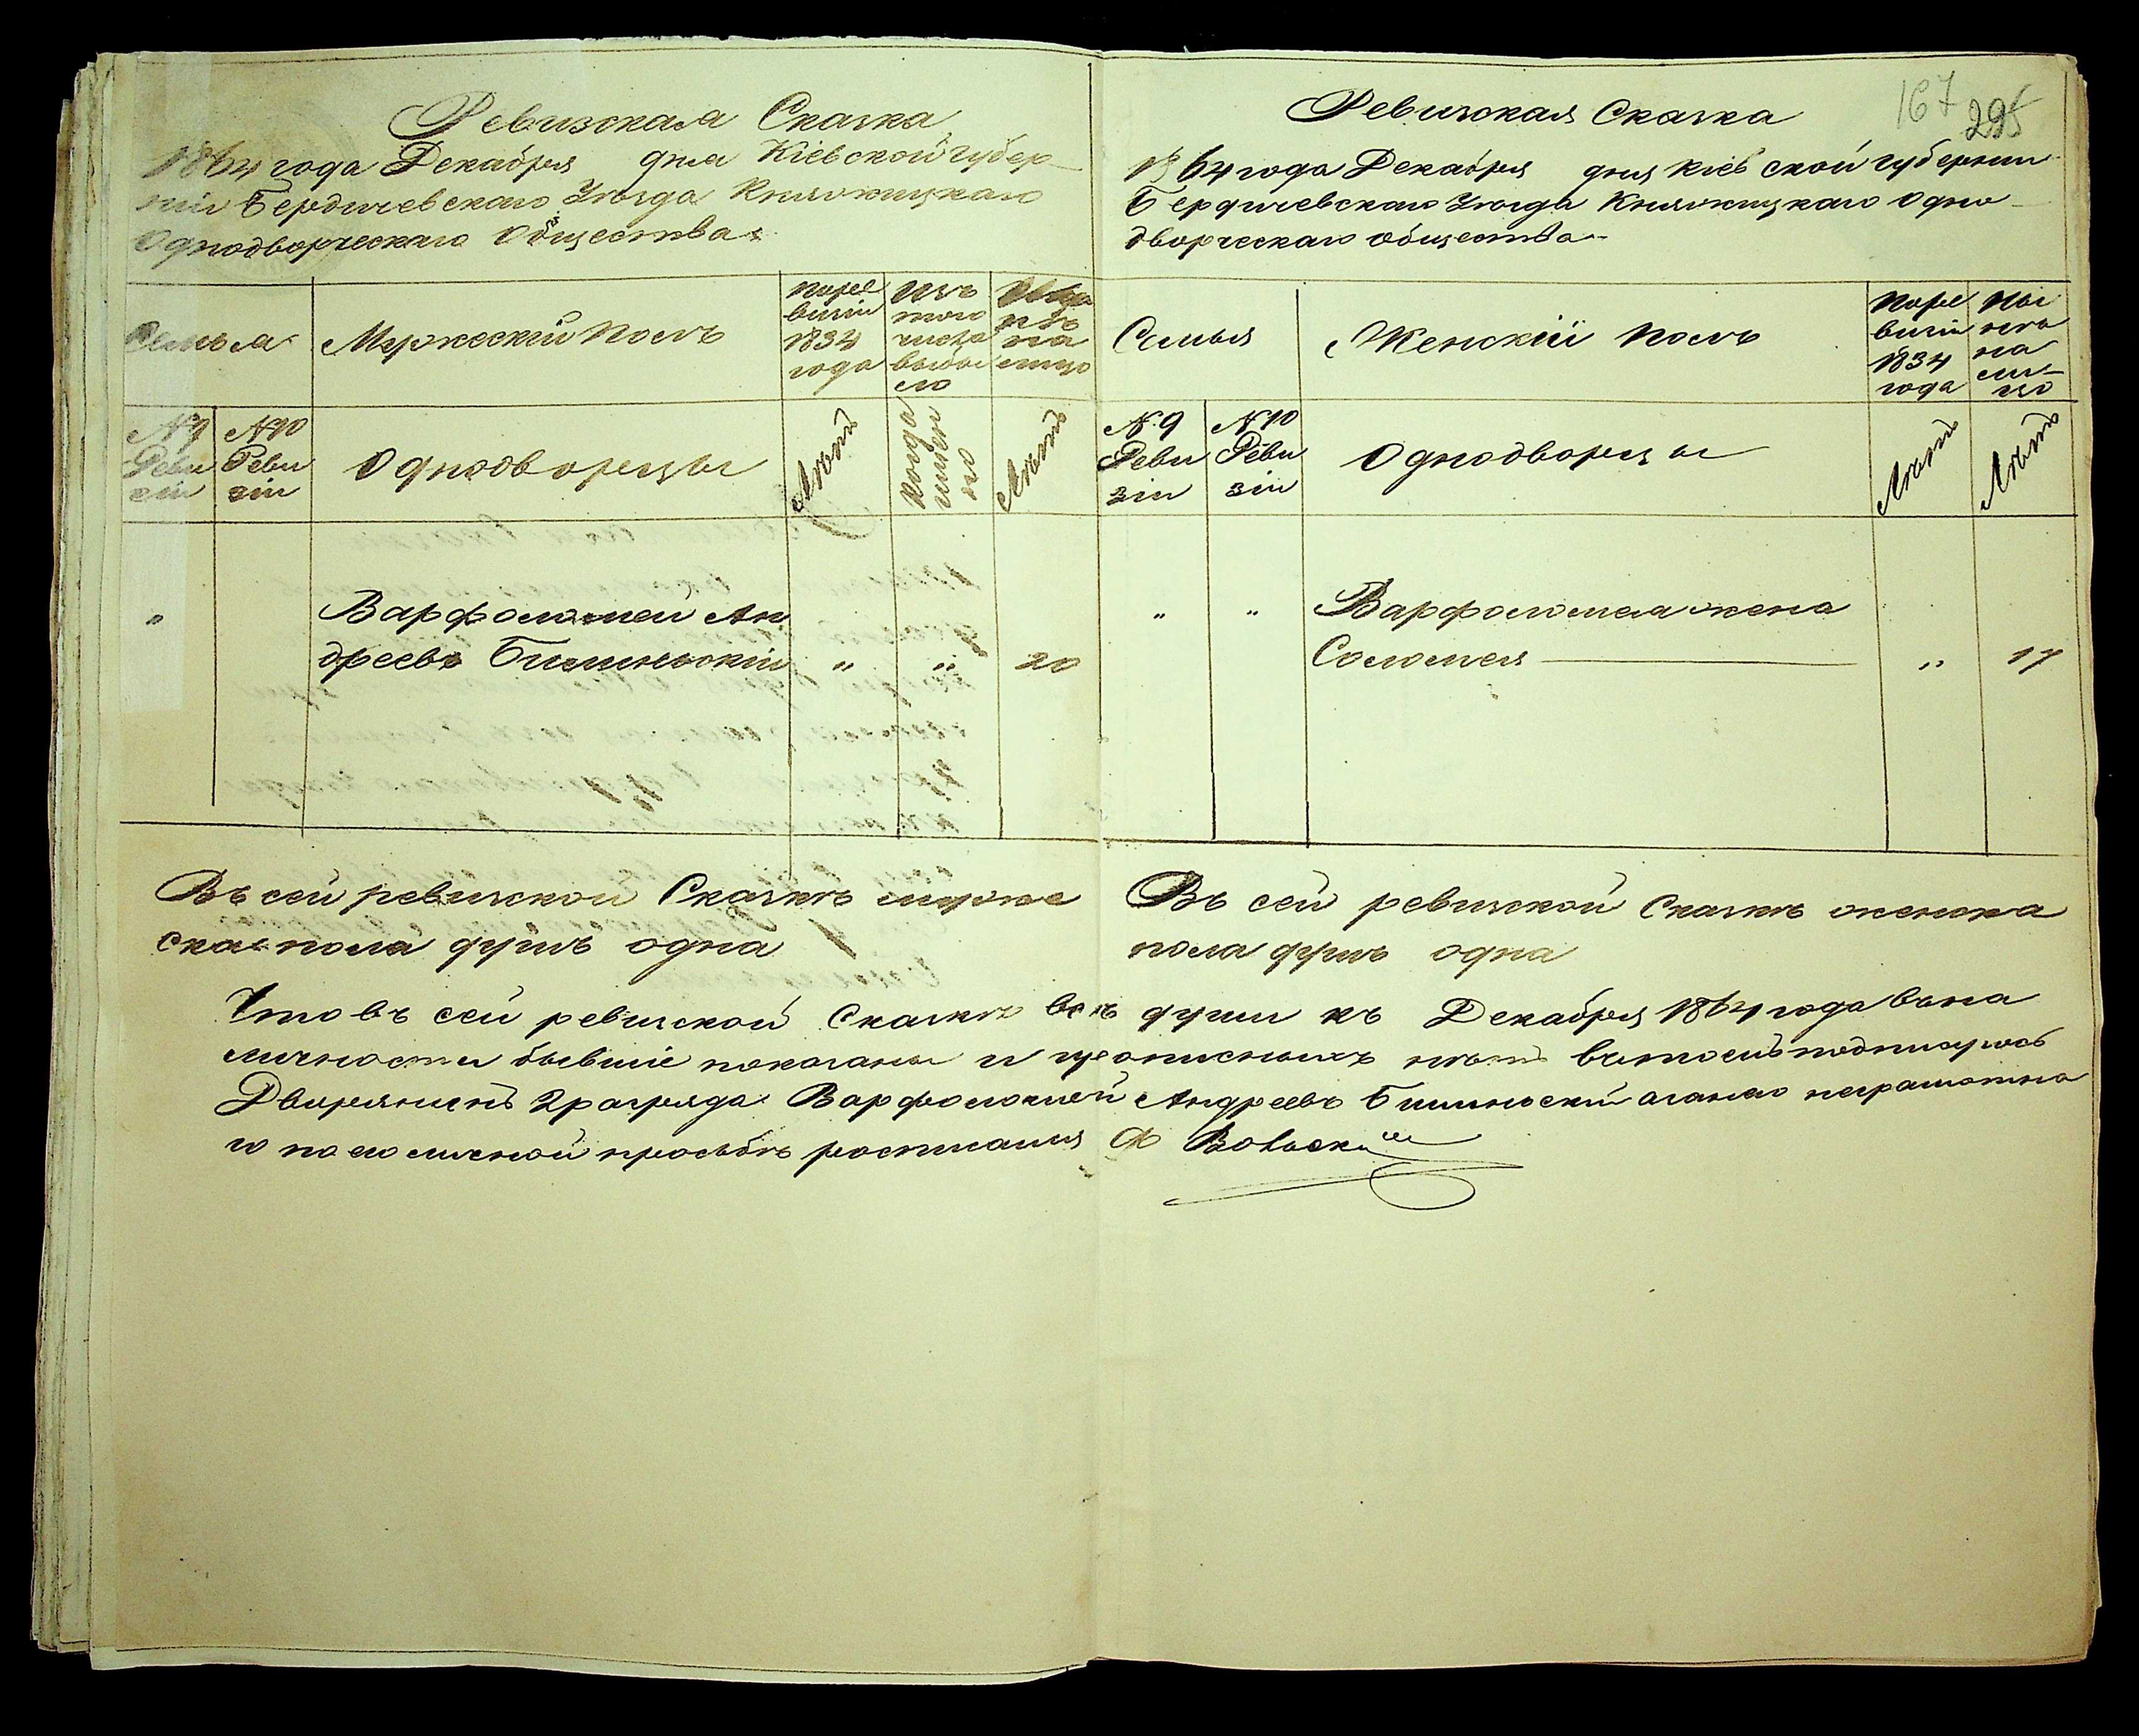 Ревизская Сказка
1864 года Декабря дня Кіевской губер-
ніи Бердичевскаго Уѣзда Княжицкаго
Однодворческаго Общества
Семья
Мужескій полъ
По ре
визіи
1834
года
Изъ
того
числа
выбы
ло
на
лицо
№ 9
Реви
зіи
№ 10
Реви
зіи
Однодворцы
Лѣтъ
Когда
имен
но
Лѣтъ
"
Варфоломей Ан
дреевъ Билиньскій " " 20
Въ сей ревизской Сказкѣ муже
ска пола душъ одна
167
295
Ревизская Сказка
1864 года Декабря дня Кіевской губерніи
Бердичевскаго Уѣзда Княжицкаго Одно-
дворческаго общества
Семья
Женскій полъ
По ре
визіи
1834
года
Ны
нѣ
на
ли-
цо
№ 9
Реви
зіи
№ 10
Реви
зіи
Однодворцы
Лѣтъ
Лѣтъ
" " Варфоломея жена
Соломея " 17
Въ сей ревизской Сказкѣ женска
пола душъ одна
Что въ сей ревизской Сказкѣ всѣ души къ Декабря 1864 года въ на
личности бывшіе показаны и прописныхъ нѣтъ въ томъ подпишусь
Дворянинъ 2 разряда Варфоломей Андреевъ Билиньскій а за него неграмотна
го по его личной просьбѣ росписался